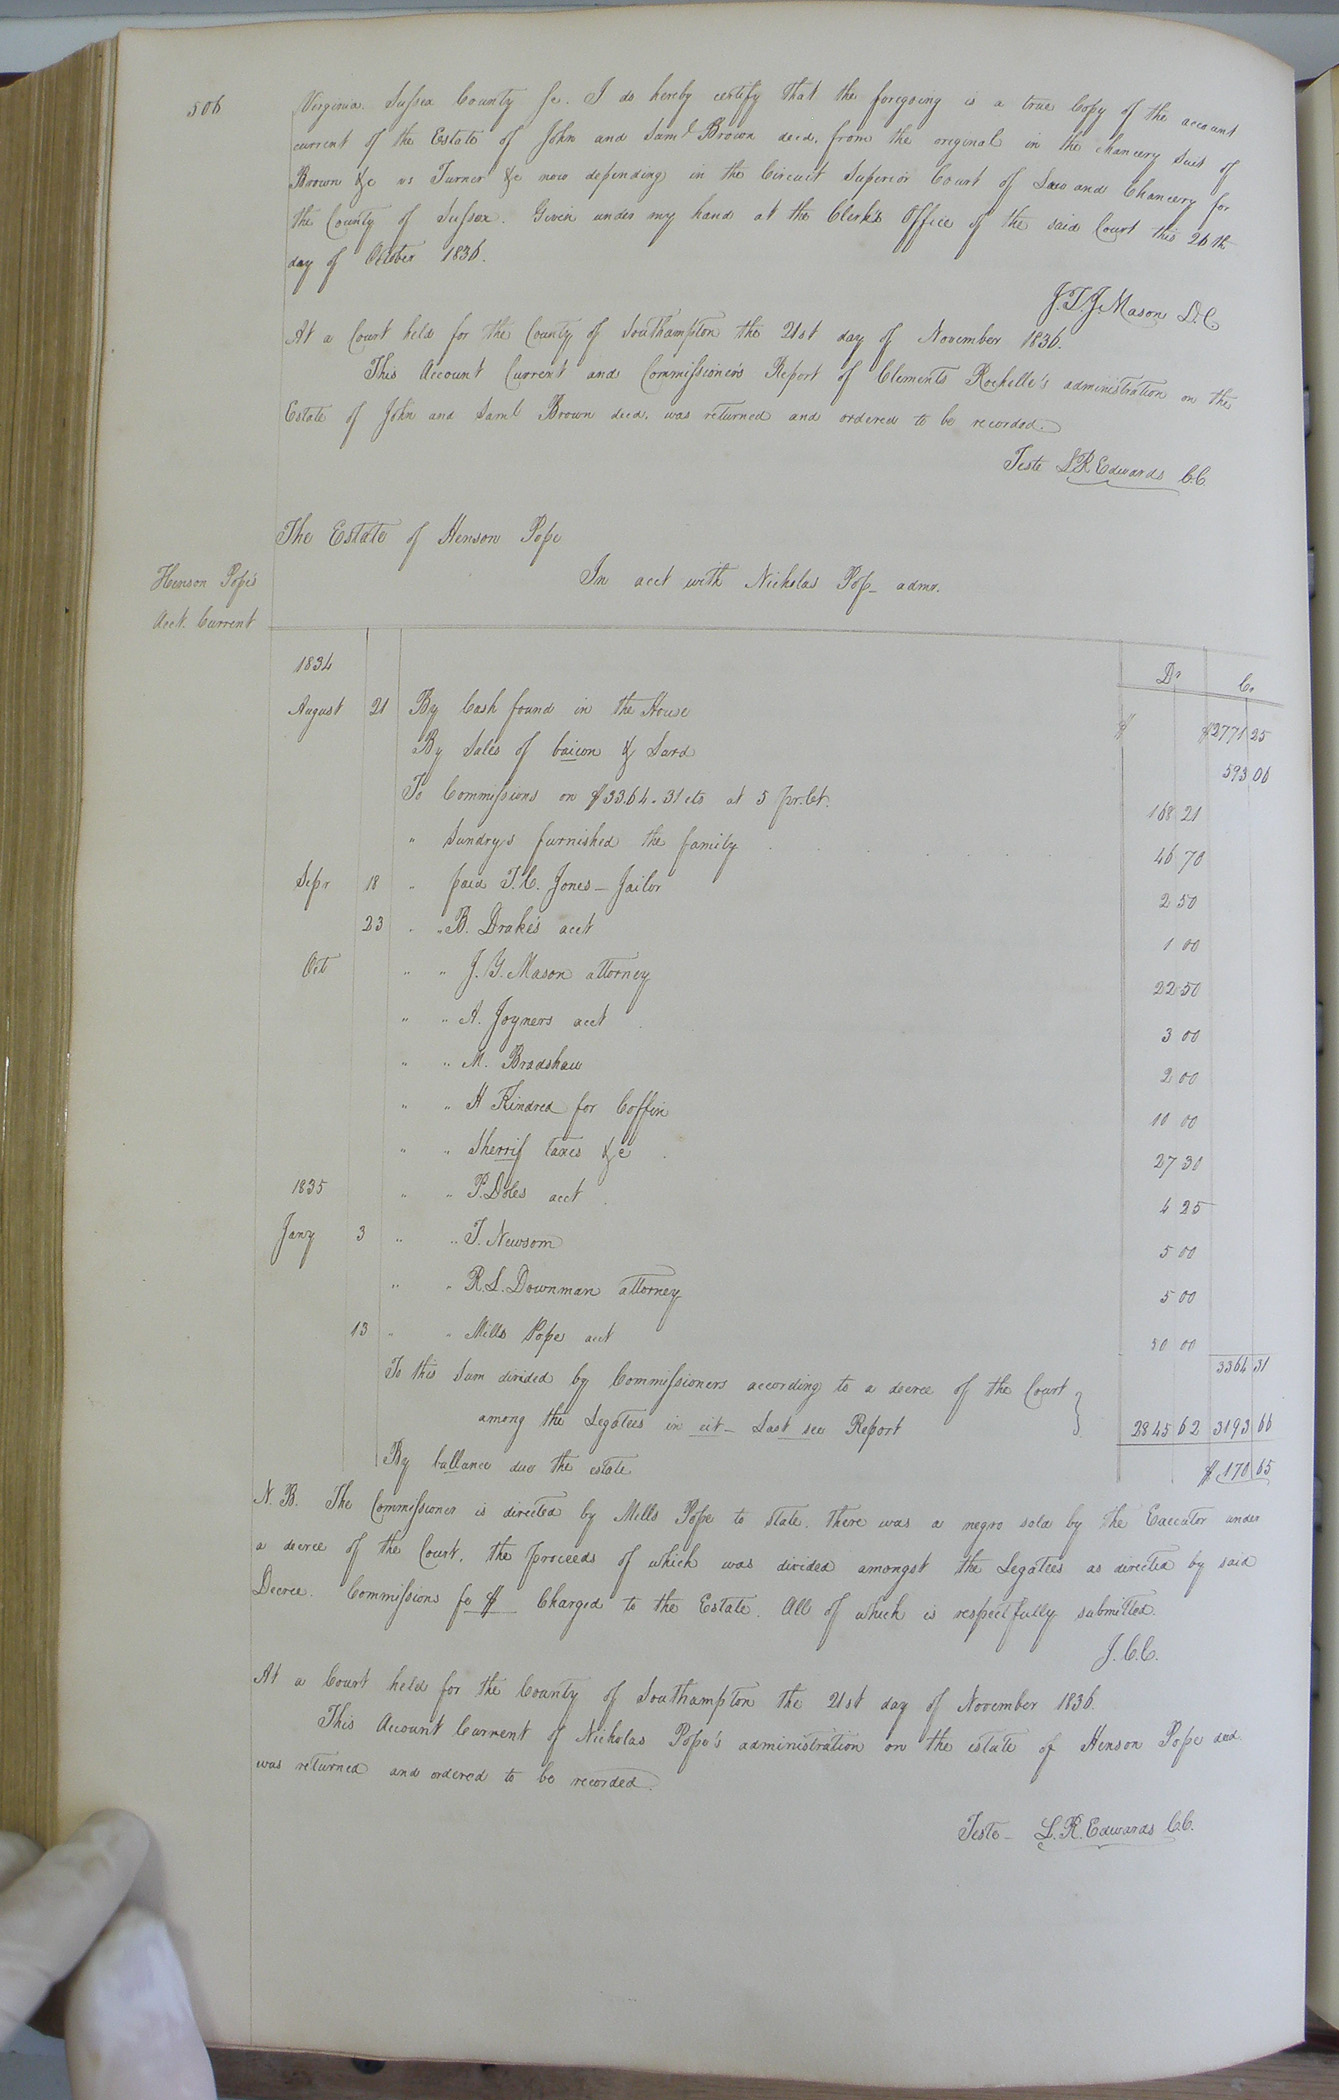 506
Virginia. Sussex County Sc. I do hereby certify that the foregoing is a true Copy of the account
current of the Estate of John and Saml Brown decd. from the original in the chancery suit of
Brown &c vs Turner &c now depending in the Circuit Superior Court of Law and Chancery for
the County of Sussex. Given under my hand at the Clerk's Office of the said Court this 26th
day of October 1836.
J.T.J. Mason D.C.
At a Court held for the County of Southampton the 21st day of November 1836.
This Account Current and Commissioner's Report of Clements Rochelle's administration on the
Estate of John and Saml Brown decd. was returned and ordered to be recorded.
Teste L R Edwards C.C.
The Estate of Henson Pope
Henson Pope's
In acct with Nicholas Pop_ admr.
Acct. Current
1834 Dr Cr
August 21 By Cash found in the House $ $2771 25
By Sales of baicon & Lard 593 06
To Commissions on $3364.31 cts at 5 pr.Ct. 168 21
" Sundrys furnished the family 46 70
Sepr 18 " paid T.C. Jones - Jailor 2 50
23 " " B. Drake's acct 1 00
Oct " " J. Y. Mason attorney 22 50
" " A. Joyners acct 3 00
" " M. Bradshaw 2 00
" " H Kindred for Coffin 10 00
" " Sherrif taxes &c 27 30
1835 " " P. Doles acct 4 25
Jany 3 " " T. Newsom 5 00
" " R. L. Downman attorney 5 00
13 " " Mills Pope acct 50 00
3364 31
To this Sum divided by Commissioners according to a decree of the Court
among the Legatees in eit_ Last see Report 2845 62 3193 66
By ballance due the estate $170 65
N. B. The Commissioner is directed by Mills Pope to state. there was a negro sold by the Executor under
a decree of the Court, the proceeds of which was divided amongst the Legatees as directed by said
Decree. Commissions fe $ Charged to the Estate. All of which is respectfully submitted.
J. C. C.
At a Court held for the County of Southampton the 21st day of November 1836.
This Account Current of Nicholas Pope's administration on the estate of Henson Pope decd.
was returned and ordered to be recorded.
Teste - L. R. Edwards C.C.